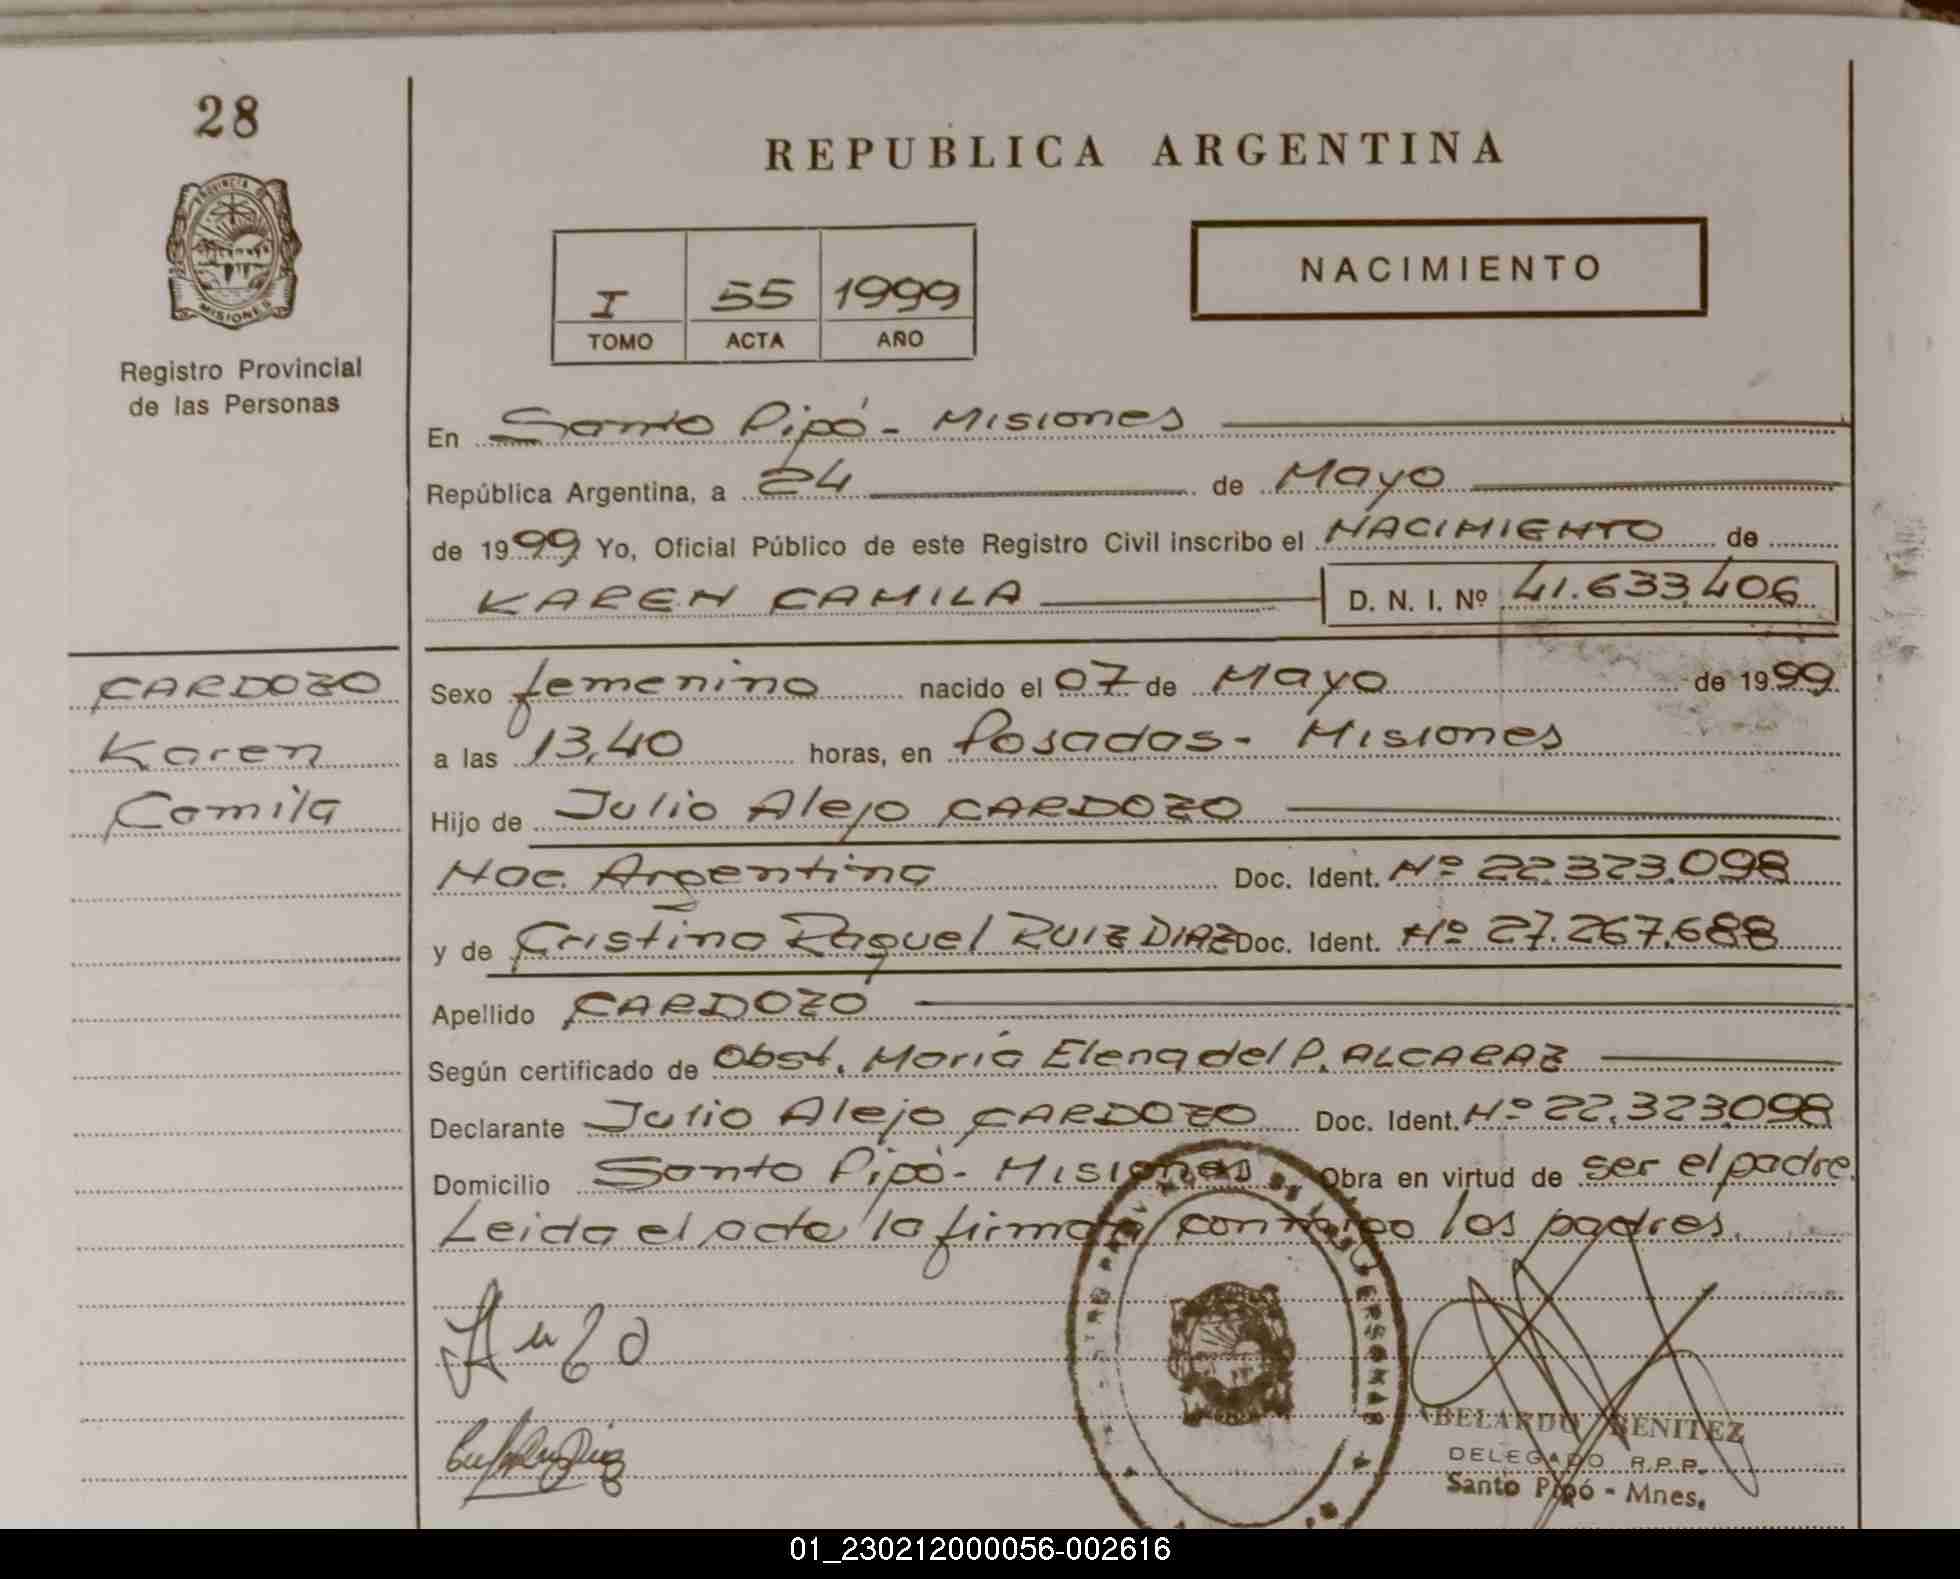 28
REPUBLICA ARGENTINA
PROVINCIA DE
MISIONES
Registro Provincial
de las Personas
I 55 1999
TOMO ACTA AÑO
NACIMIENTO
En Santo Pipó - Misiones
República Argentina, a 24 de Mayo
de 1999 Yo, Oficial Público de este Registro Civil inscribo el NACIMIENTO de
KAREN CAMILA D. N. I. Nº 41.633.406
CARDOZO
Karen
Camila
Sexo femenino nacido el 07 de Mayo de 1999
a las 13,40 horas, en Posadas - Misiones
Hijo de Julio Alejo CARDOZO
Nac. Argentina Doc. Ident. Nº 22.323.098
y de Cristina Raquel RUIZ DIAZ Doc. Ident. Nº 27.267.688
Apellido CARDOZO
Según certificado de Obst. María Elena del P. ALCARAZ
Declarante Julio Alejo CARDOZO Doc. Ident. Nº 22.323.098
Domicilio Santo Pipó - Misiones Obra en virtud de ser el padre.
Leida el acta la firman conmigo los padres.
BELARDO BENITEZ
DELEGADO R.P.P.
Santo Pipó - Mnes.
01_230212000056-002616